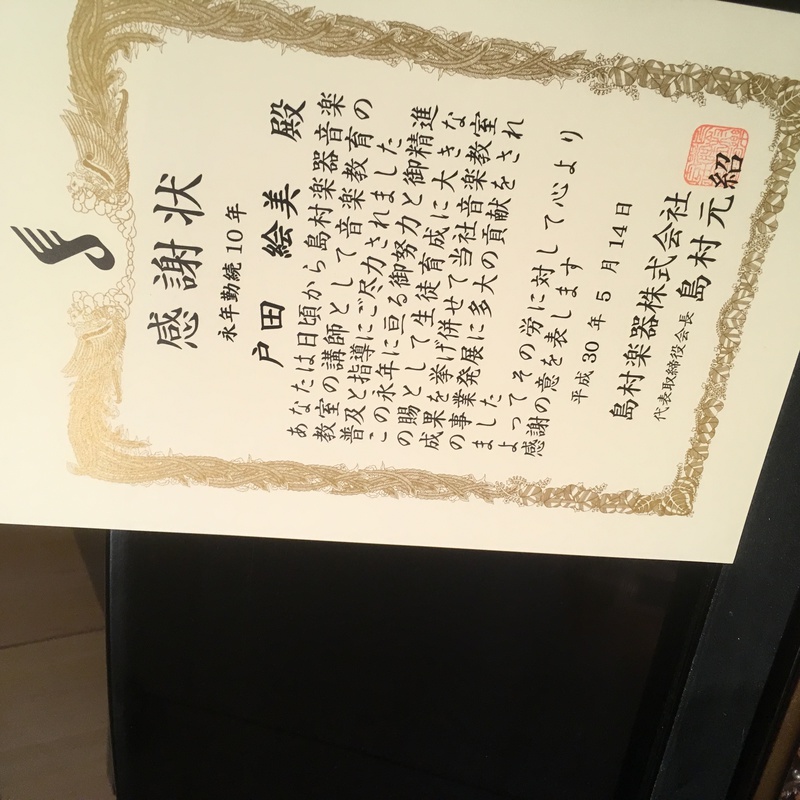 感謝状
永年勤続10年
戸田 絵美 殿
あなたは日頃から島村楽器音楽
教室の講師として音楽教育の
普及と指導にご尽力されました
この永年に亘る御努力と御精進
の賜として生徒育成に大きな
成果を挙げ併せて当社音楽教室
の事業発展に多大の貢献をされ
ました
よってその労に対して心より
感謝の意を表します
平成30年5月14日
島村楽器株式会社
代表取締役会長 島村元紹